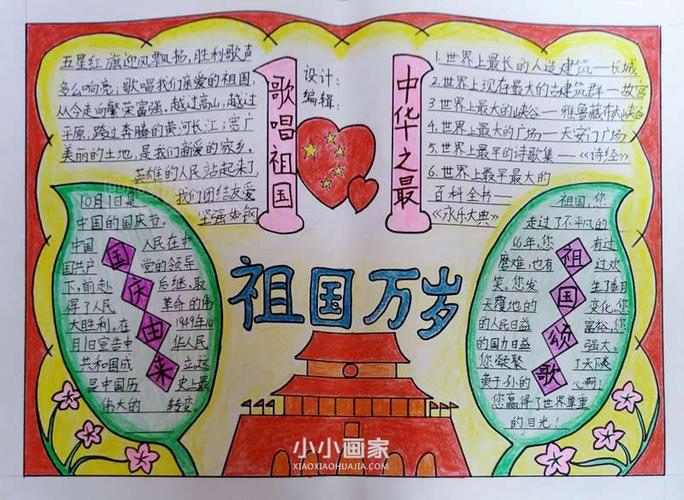 五星红旗迎风飘扬，胜利歌声
多么响亮；歌唱我们亲爱的祖国，
从今走向繁荣富强，越过高山，越过
平原，跨过奔腾的黄河长江；宽广
美丽的土地，是我们亲爱的家乡，
英雄的人民站起来了
我们团结友爱
坚强如钢
歌唱祖国
设计：
编辑：
中华之最
1.世界上最长的人造建筑——长城
2.世界上现存最大的古建筑群——故宫
3.世界上最大的峡谷——雅鲁藏布大峡谷
4.世界上最大的广场——天安门广场
5.世界上最早的诗歌集——《诗经》
6.世界上最早最大的
百科全书——
《永乐大典》
10月1日是
中国的国庆节。
中国 人民在中
国共产 党的领导
下，前赴 后继，取
得了人民 革命的伟
大胜利，在 1949年10
月1日宣告中 华人民
共和国成 立，这
是中国历 史上最
伟大的 转变。
国庆由来
祖国万岁
祖国，您
走过了不平凡的
66年，您 有过
磨难，也有 过欢
笑。您发 生了翻日
天覆地的 变化，您
的人民日益 富裕，您
的国力日益 强大。
您凝聚 了天下炎
黄子孙的 心啊！
您赢得了世界尊重
的目光！
祖国颂歌
小小画家
XIAOXIAOHUAJIA.COM